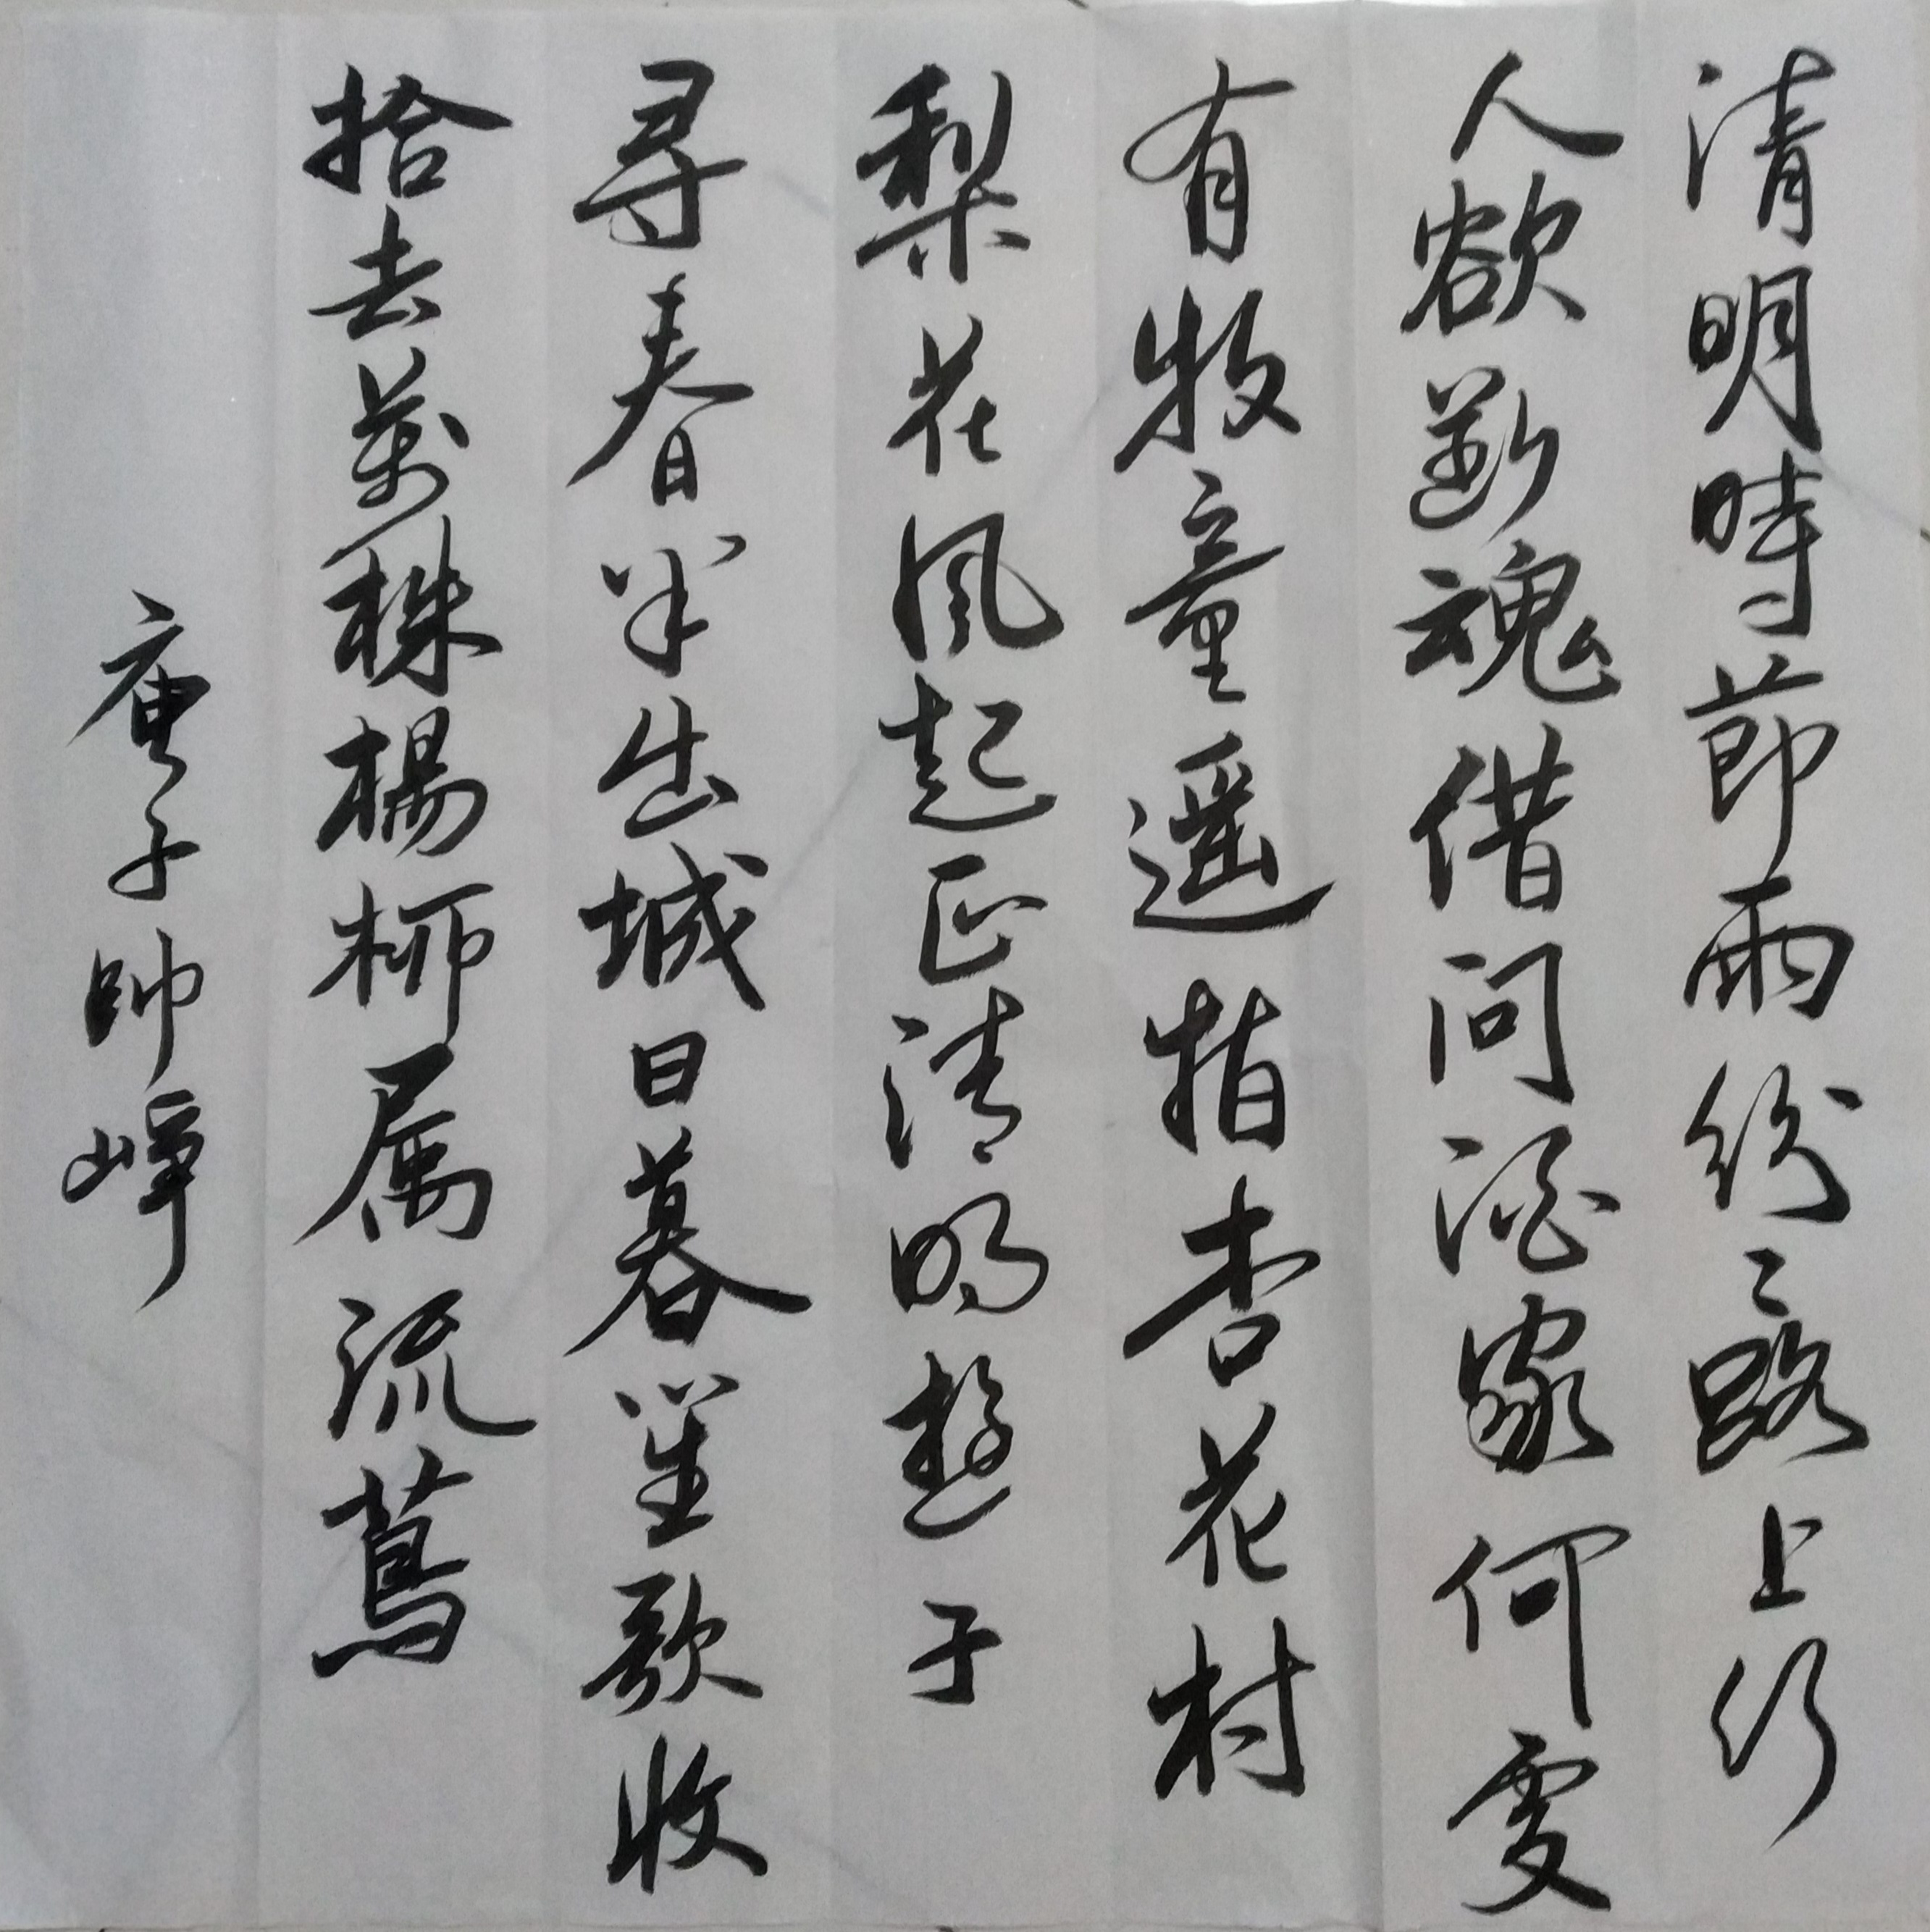 清明時節雨紛〻路上行
人欲斷魂借问酒家何處
有牧童遥指杏花村
梨花風起正清明遊子
尋春半出城日暮笙歌收
拾去萬株楊柳属流鶯
庚子帥峰